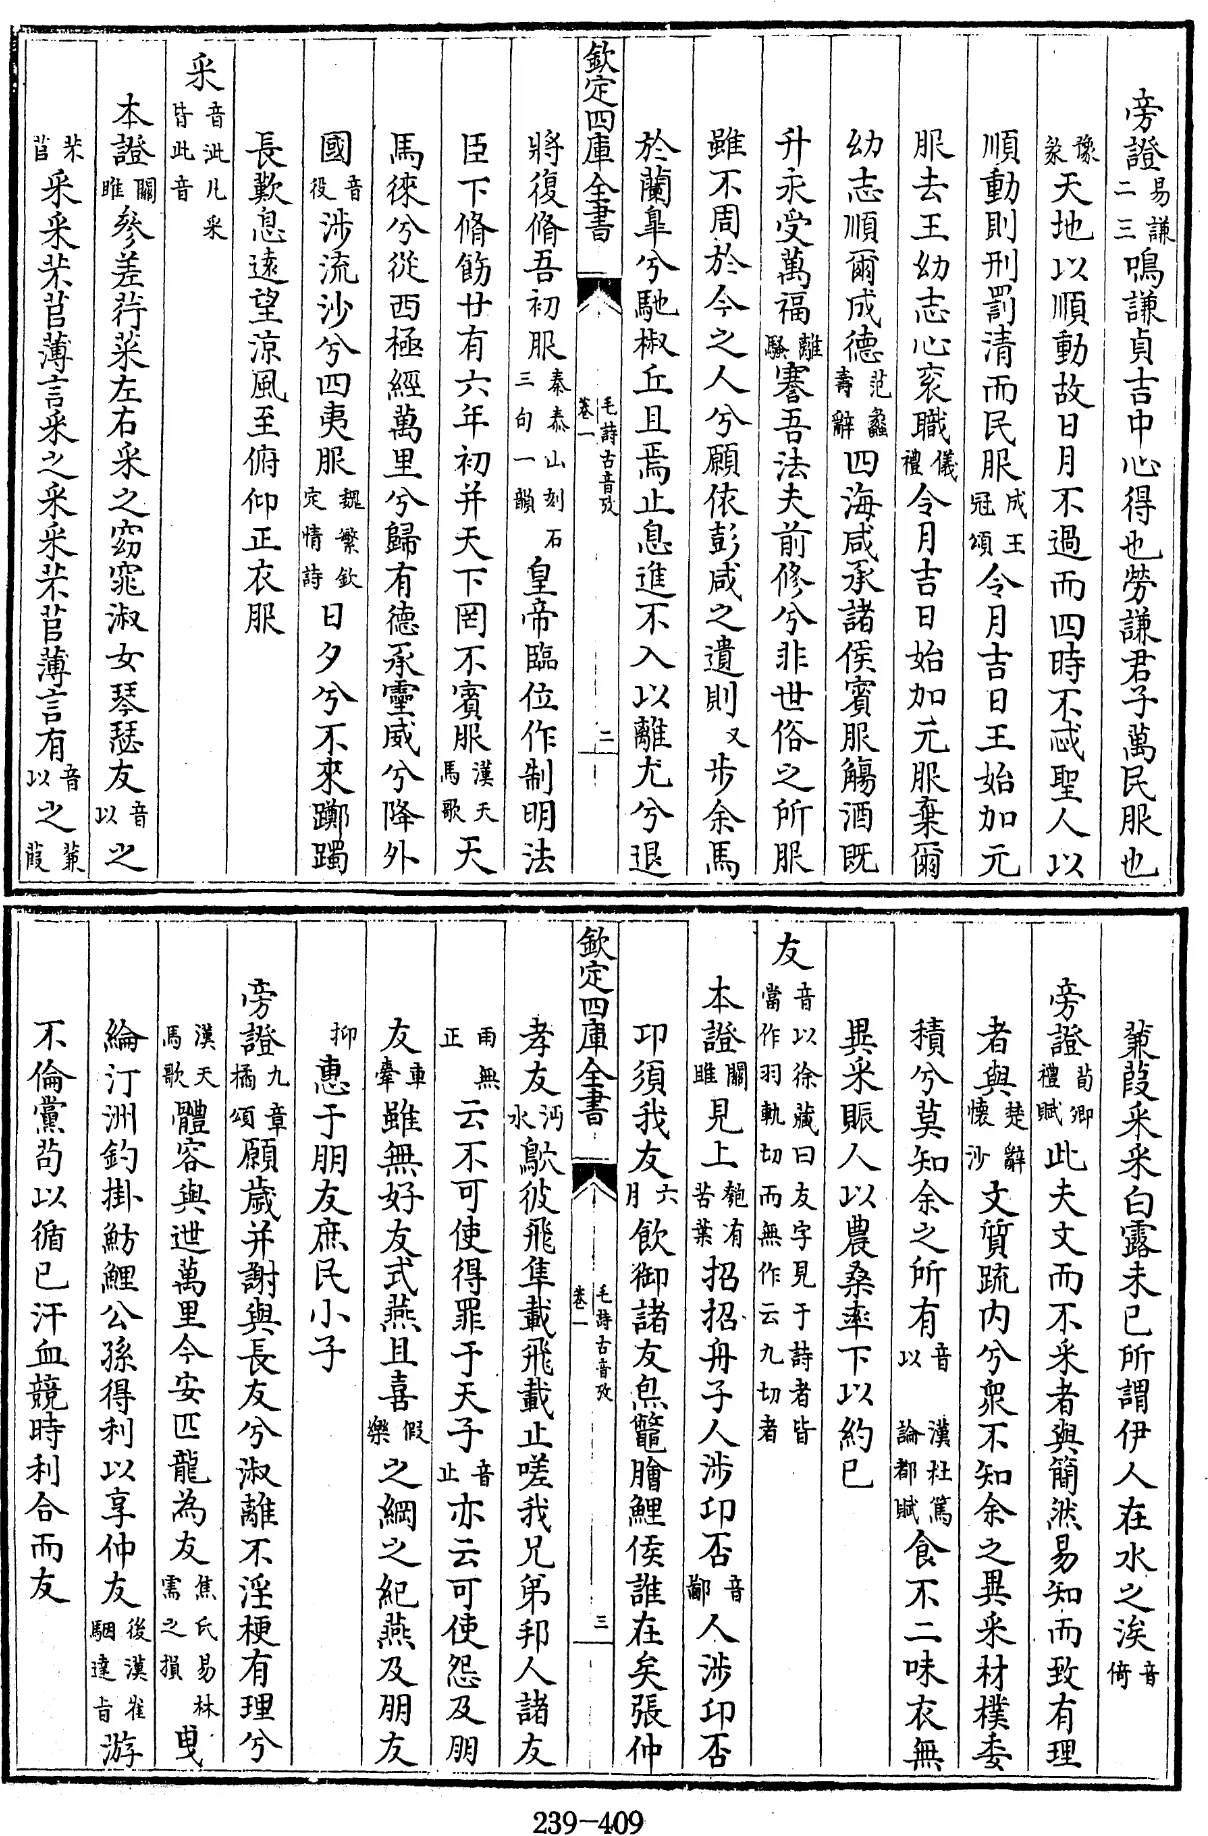 旁證易謙二三鳴謙貞吉中心得也勞謙君子萬民服也
豫彖天地以順動故日月不過而四時不忒聖人以
順動則刑罰清而民服成王冠頌令月吉日王始加元
服去王幼志心衮職儀禮令月吉日始加元服棄爾
幼志順爾成德范蠡壽辭四海咸承諸侯賓服觴酒既
升永受萬福離騷謇吾法夫前修兮非世俗之所服
雖不周於今之人兮願依彭咸之遺則又步余馬
於蘭臯兮馳椒丘且焉止息進不入以離尤兮退
欽定四庫全書
毛詩古音攷
卷一
二
將復脩吾初服秦泰山刻石三句一韻皇帝臨位作制明法
臣下脩飭廿有六年初并天下罔不賓服漢天馬歌天
馬徠兮從西極經萬里兮歸有德承靈威兮降外
國音役涉流沙兮四夷服魏繁欽定情詩日夕兮不來躑躅
長歎息遠望涼風至俯仰正衣服
采音泚凡采皆此音
本證關雎參差荇菜左右采之窈窕淑女琴瑟友音以之
芣苢采采芣苢薄言采之采采芣苢薄言有音以之蒹葭
蒹葭采采白露未已所謂伊人在水之涘音倚
旁證荀卿禮賦此夫文而不采者與簡然易知而致有理
者與楚辭懷沙文質疏内兮衆不知余之異采材樸委
積兮莫知余之所有音以漢杜篤論都賦食不二味衣無
異采賑人以農桑率下以約已
友音以徐蕆曰友字見于詩者皆當作羽軌切而無作云九切者
本證關雎見上匏有苦葉招招舟子人涉卬否音鄙人涉卬否
卬須我友六月飲御諸友炰鼈膾鯉侯誰在矣張仲
欽定四庫全書
毛詩古音攷
卷一
三
孝友沔水鴥彼飛隼載飛載止嗟我兄弟邦人諸友
雨無正云不可使得罪于天子音止亦云可使怨及朋
友車舝雖無好友式燕且喜假樂之綱之紀燕及朋友
抑惠于朋友庶民小子
旁證九章橘頌願歲并謝與長友兮淑離不淫梗有理兮
漢天馬歌體容與迣萬里今安匹龍為友焦氏易林需之損曳
綸汀洲釣掛魴鯉公孫得利以享仲友後漢崔駰達旨游
不倫黨苟以循已汗血競時利合而友
239-409